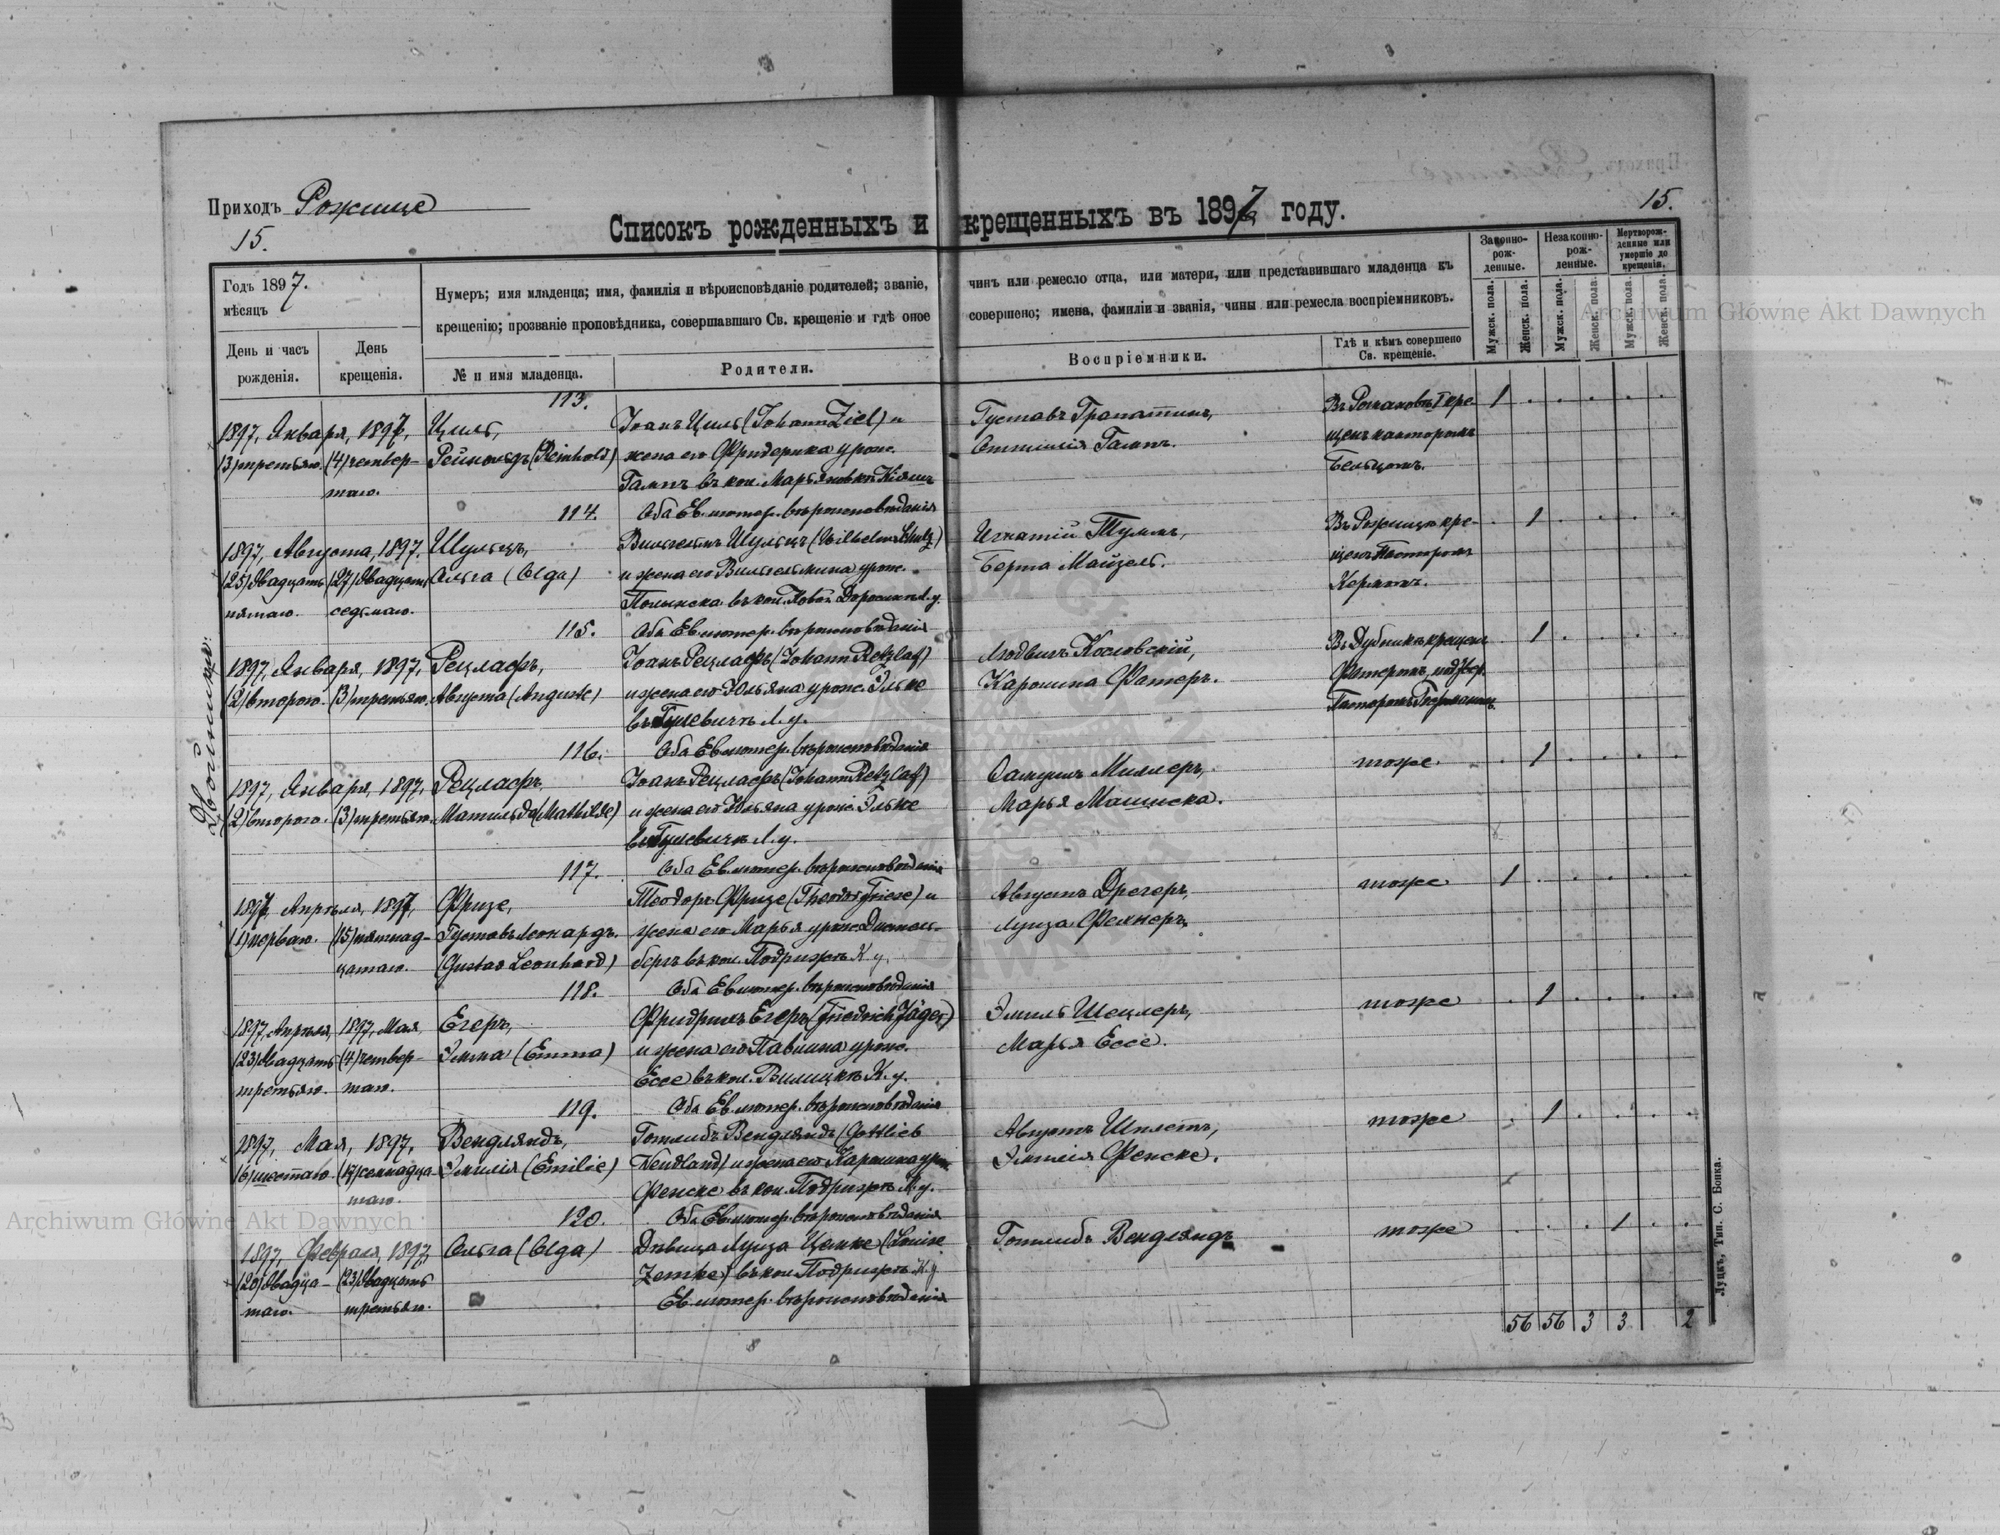 Приходъ Рожище
15.
15.
Списокъ рожденныхъ и крещенныхъ въ 1897 году.
Годъ 1897.
мѣсяцъ
Нумеръ; имя младенца; имя, фамилія и вѣроисповѣданіе родителей; званіе, чинъ или ремесло отца, или матери, или представившаго младенца къ
крещенію; прозваніе проповѣдника, совершавшаго Св. крещеніе и гдѣ оное совершено; имена, фамиліи и званія, чины или ремесла воспріемниковъ.
День и часъ рожденія.
День крещенія.
№ и имя младенца.
Родители.
Воспріемники.
Гдѣ и кѣмъ совершено Св. крещеніе.
Законно-рож-денные.
Незаконно-рож-денные.
Мертворож-денные или умершіе до крещенія.
Мужск. пола.
Женск. пола.
Мужск. пола.
Женск. пола.
Мужск. пола.
Женск. пола.
113.
1897, Января, 1897, Циль, Іоанъ Циль (Johann Ziel) и Густавъ
(3) третьяго. (4) четвер- Рейнольдъ (Reinhold) жена его Фридерика урож. Оттилія Гаммъ. щенъ канторомъ
таго. Гаммъ въ кол. Марьяновкѣ
1
114. Оба Ев. лютер. вѣроисповѣданія
1897, Августа, 1897. Шульцъ, Вильгельмъ Шульцъ (Wilhelm Schulz) Игнатій Тумъ, Въ Рожищѣ кре- 1
(25) двадцать (27) двадцать Ольга (Olga) и жена его Вильгельмина урож. Берта Майзель. щенъ Пасторомъ
пятаго. седьмаго. въ кол. Новой Л. у. Кермомъ.
115. Оба Ев. лютер. вѣроисповѣданія
Двойники:
1897, Января, 1897, Рецлафъ, Іоанъ Рецлафъ (Johann Retzlaf) Людвихъ Козловскій, Въ крещена 1
(2) второго. (3) третьяго. Августа (Auguste) и жена его Юльяна урож. Эльке Каролина Фатеръ.
въ Гулевичѣ Л. у. Пасторомъ
116. Оба Ев. лютер. вѣроисповѣданія
1897, Января, 1897, Рецлафъ, Іоанъ Рецлафъ (Johann Retzlaf) Самуилъ Миллеръ, тоже. 1
(2) второго. (3) третьяго. Матильда (Mathilde) и жена его Юльяна урож. Эльке Марья
въ Гулевичѣ Л. у.
117. Оба Ев. лютер. вѣроисповѣданія
1897, Апрѣля, 1897, Фризе, Теодоръ Фризе (Theodor Friese) и Августъ Дрегеръ, тоже 1
(1) перваго. (15) пятнад- Густавъ Леонардъ. жена его Марья урож. Луиза
цатаго. (Gustav Leonhard) бергъ въ кол. Подрижѣ К. у.
118. Оба Ев. лютер. вѣроисповѣданія
1897, Апрѣля, 1897, Мая, Егеръ, Фридрихъ Егеръ (Friedrich Jäger) Эмиль Шецлеръ, тоже 1
(23) двадцать (4) четвер- Эмма (Emma) и жена его Павлина урож. Марья Ессе.
третьяго. таго. Ессе въ кол. К. у.
119. Оба Ев. лютер. вѣроисповѣданія
1897, Мая, 1897, Вендляндъ, Готлибъ Вендляндъ (Gottlieb Августъ тоже 1
(6) шестаго. (17) семнадца- Эмилія (Emilie) Wendland) и жена его Каролина урож. Эмилія Фенске.
таго. Фенске въ кол. Подрижѣ
120. Оба Ев. лютер. вѣроисповѣданія
1897, Февраля, 1897, Ольга (Olga) Дѣвица Луиза Цемке (Louise Готлибъ Вендляндъ тоже 1
(20) двадца- (23) двадцать Zemke) въ кол. Подрижѣ К. у.
таго. третьяго. Ев. лютер. вѣроисповѣданія
56 56 3 3 2
Луцкъ, Тип. С. Бонка.
Archiwum Główne Akt Dawnych
Archiwum Główne Akt Dawnych